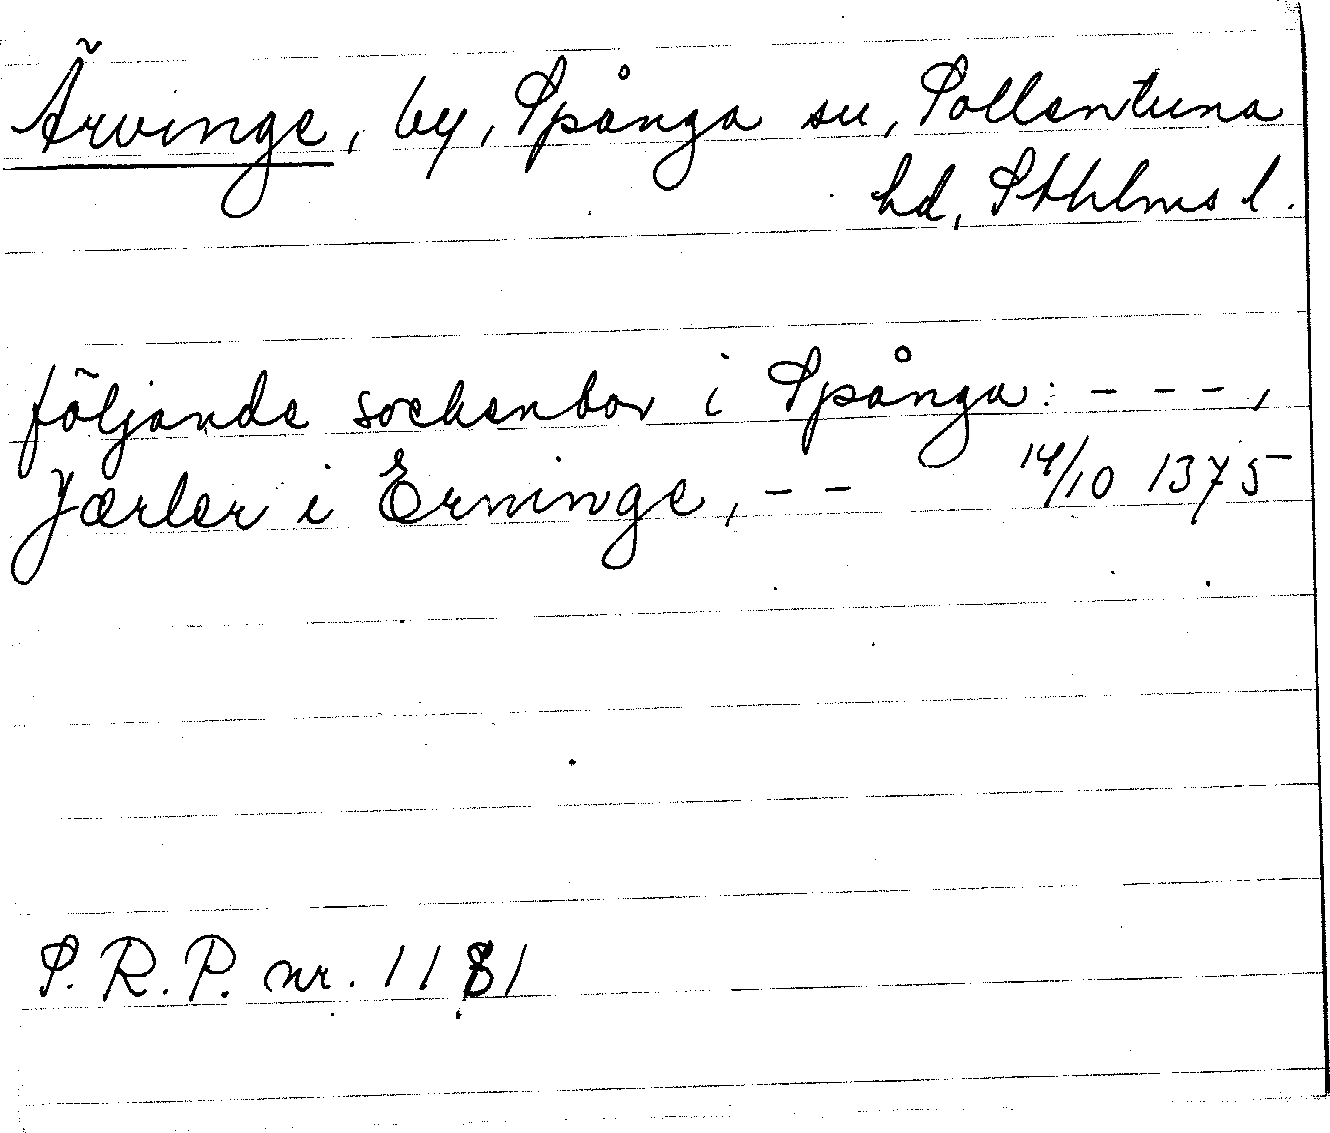 Ärvinge, by, Spånga sn, Sollentuna
hd, Sthlms l.
följande sockenbor i Spånga: - - - ,
Jærler i Erninge, - - 14/10 1375
S. R. P. nr. 1181